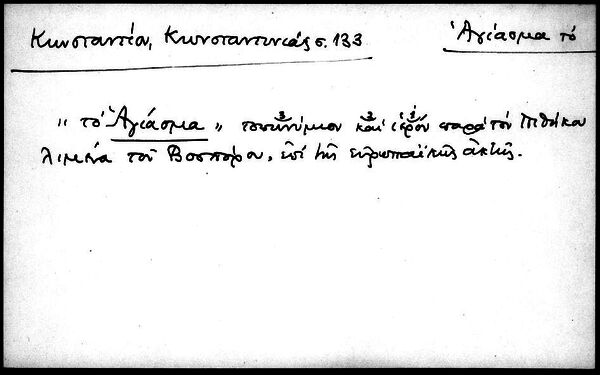 Κωνσταντίου, Κωνσταντινιάς σ. 133 Ἁγίασμα τό
" τὸ Ἁγίασμα " τοπωνύμιον καὶ ἱερόν παρὰ τὸν Πιθήκου
λιμένα τοῦ Βοσπόρου, ἐπί τῆς εὐρωπαϊκῆς ἀκτῆς.